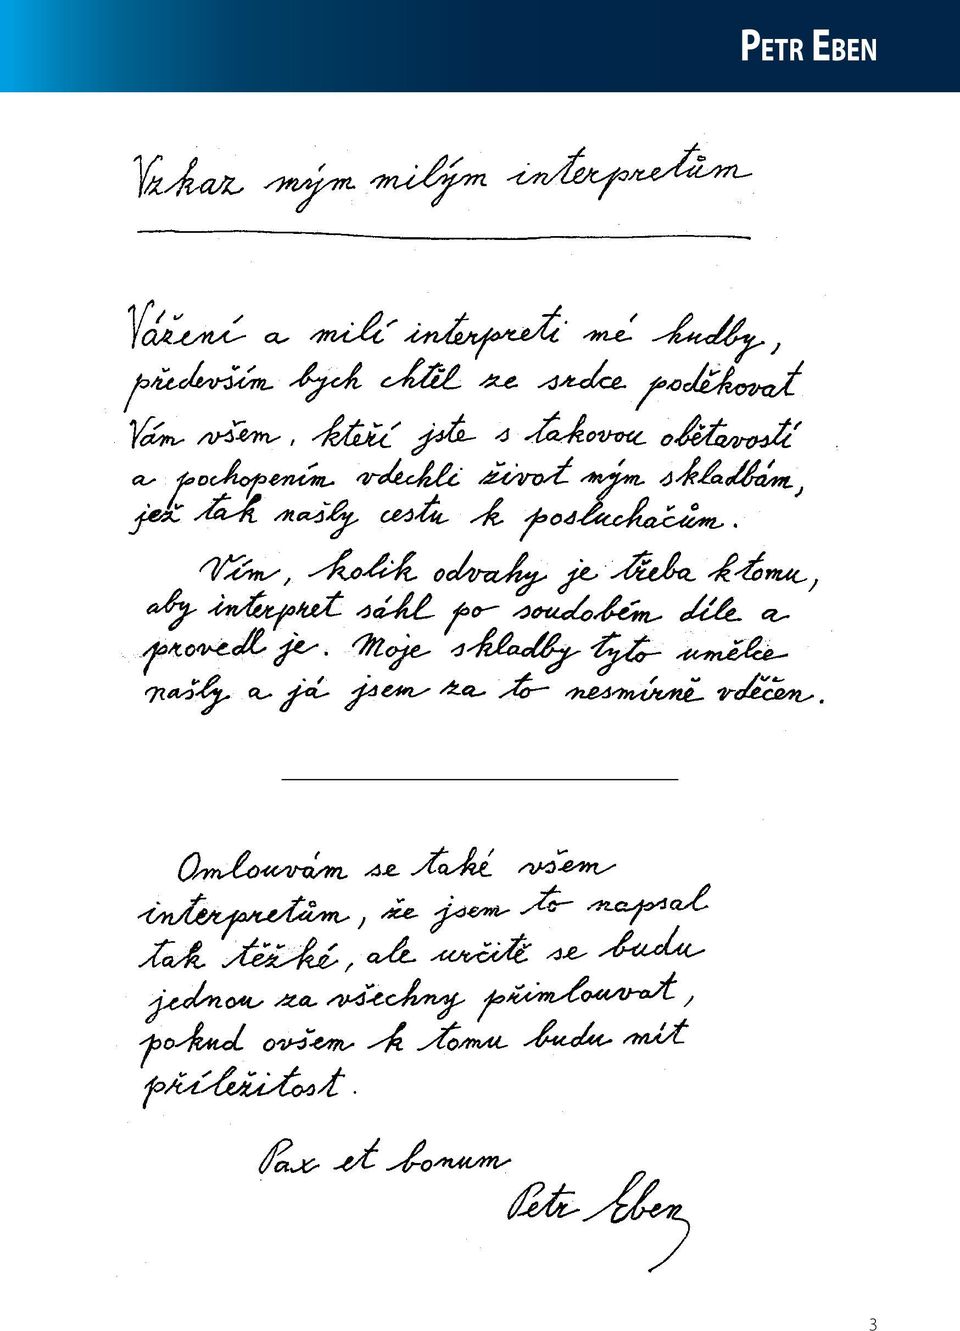 PETR EBEN
Vzkaz mým milým interpretům
Vážení a milí interpreti mé hudby,
především bych chtěl ze srdce poděkovat
Vám všem, kteří jste s takovou obětavostí
a pochopením vdechli život mým skladbám,
jež tak našly cestu k posluchačům.
Vím, kolik odvahy je třeba k tomu,
aby interpret sáhl po soudobém díle a
provedl je. Moje skladby tyto umělce
našly a já jsem za to nesmírně vděčen.
Omlouvám se také všem
interpretům, že jsem to napsal
tak těžké, ale určitě se budu
jednou za všechny přimlouvat,
pokud ovšem k tomu budu mít
příležitost.
Pax et bonum
Petr Eben
3